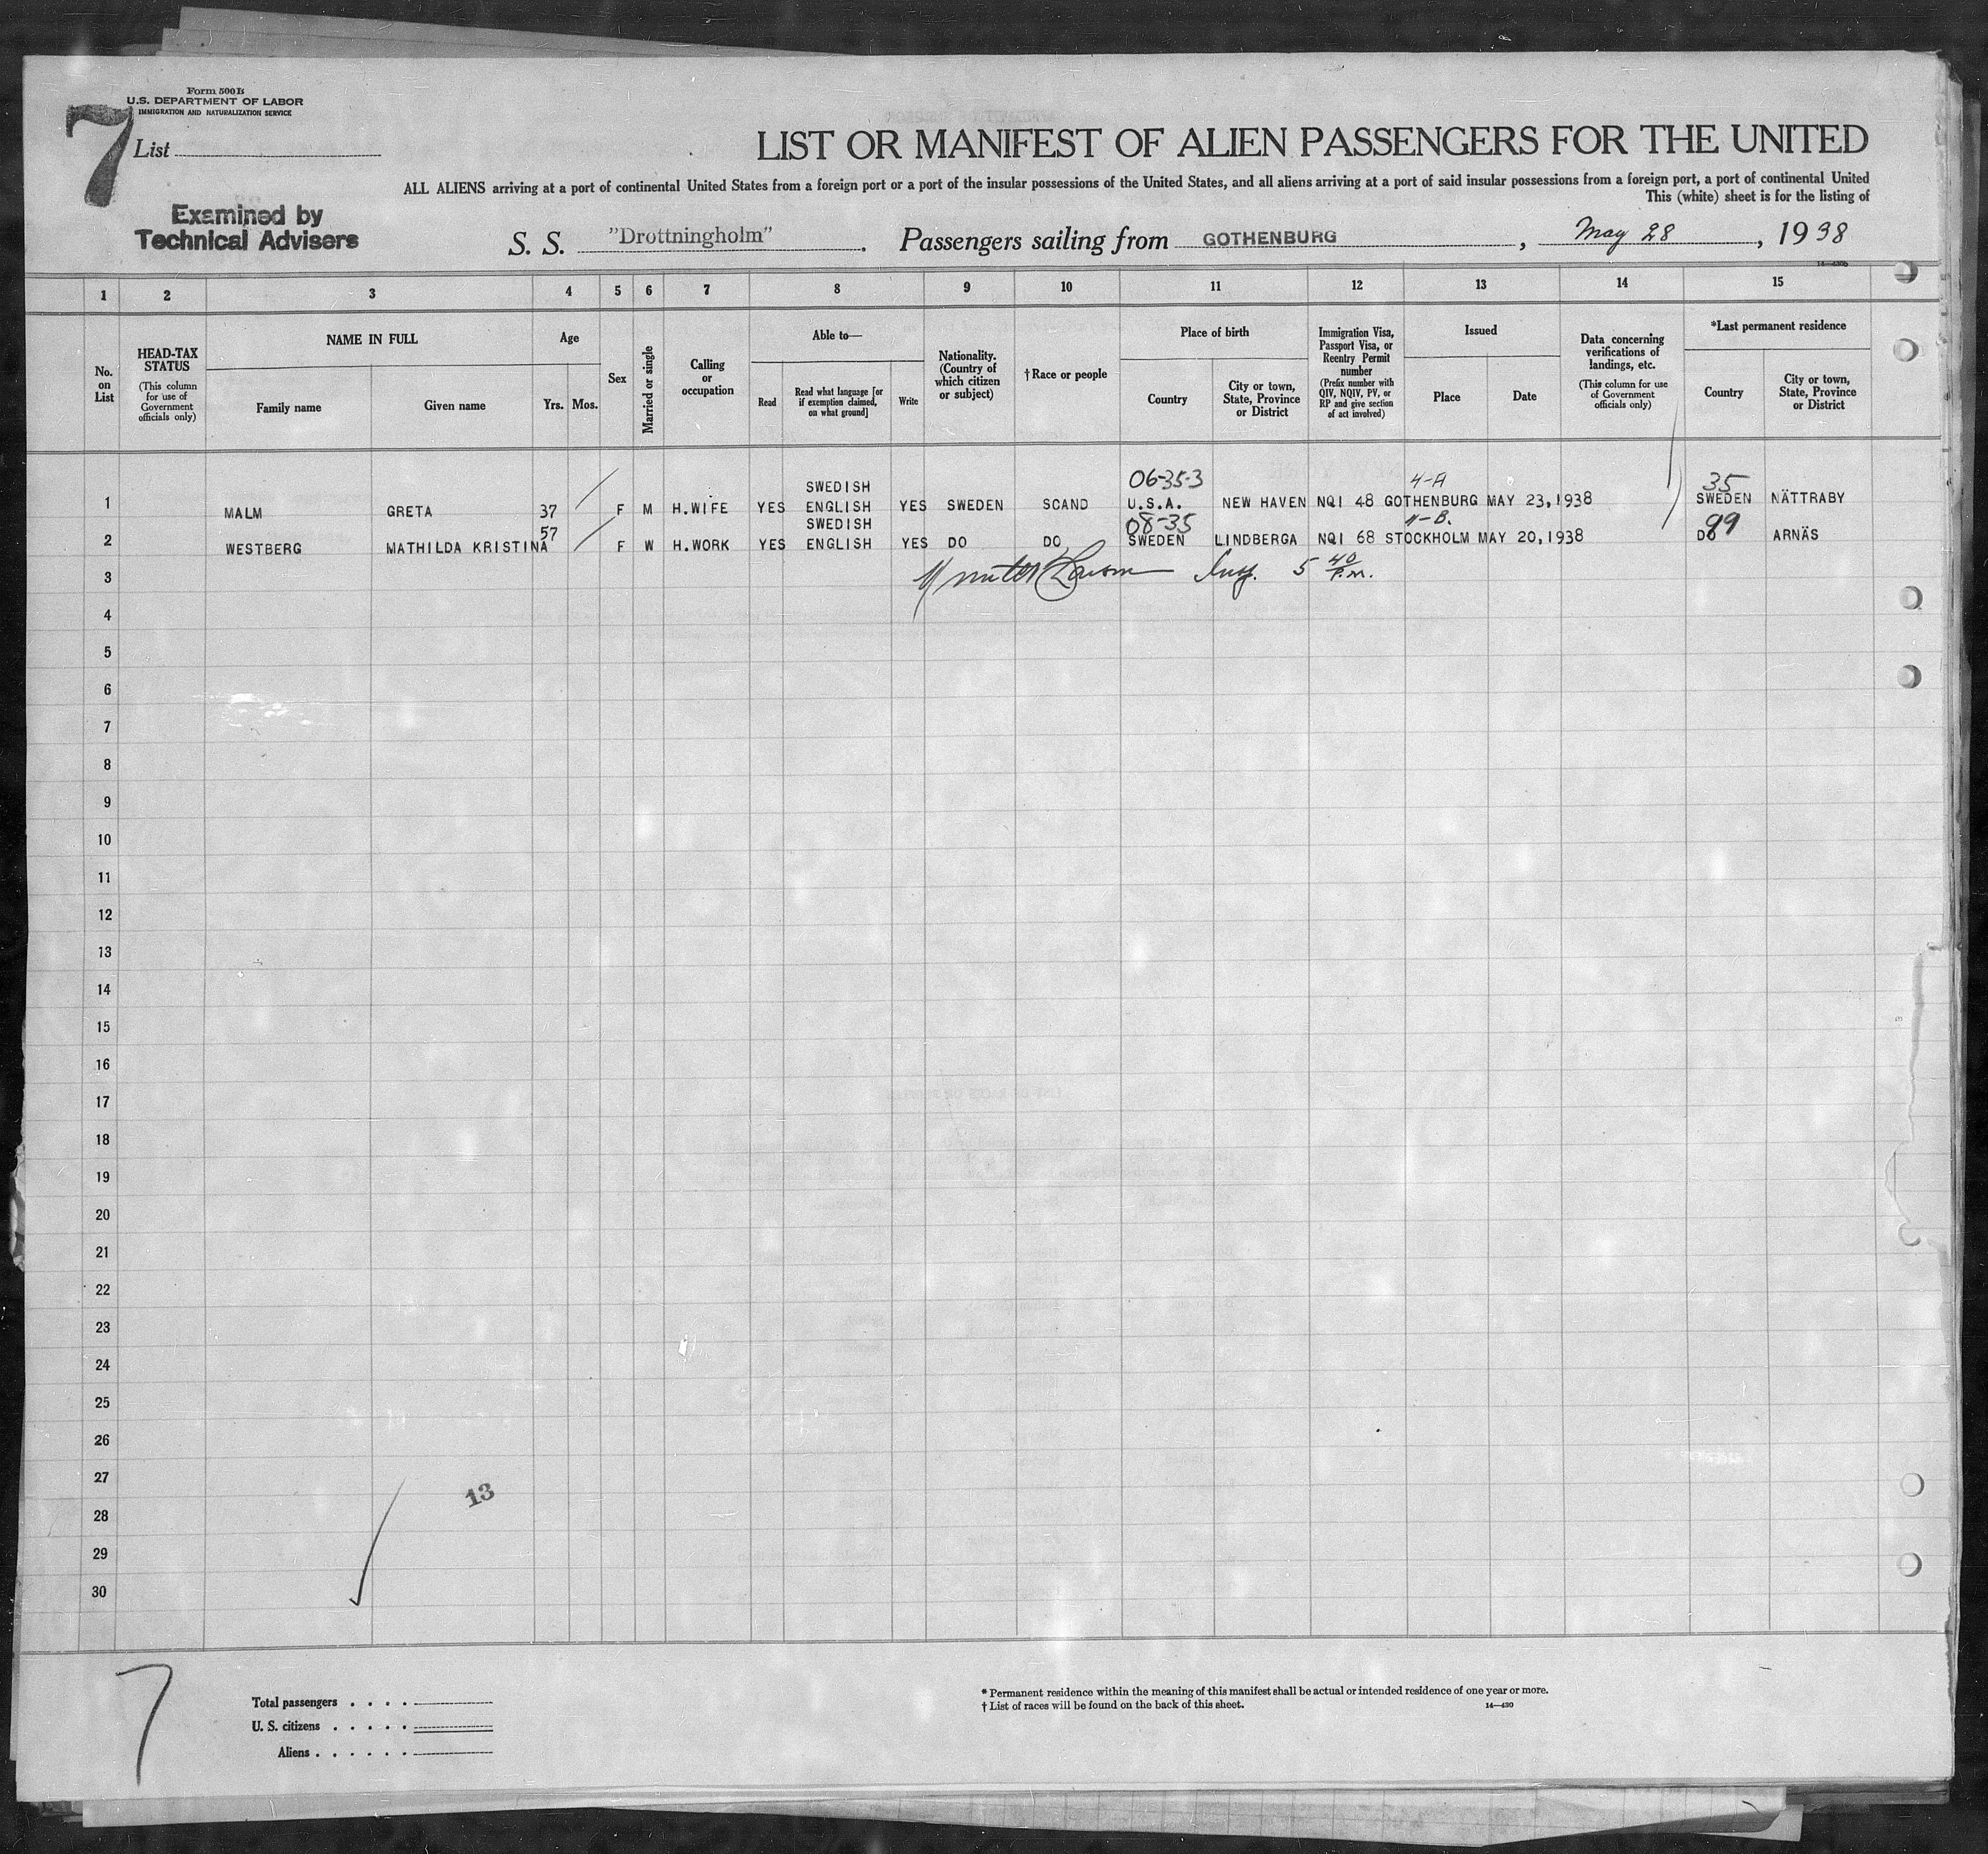 Form 500B
U.S. DEPARTMENT OF LABOR
IMMIGRATION AND NATURALIZATION SERVICE
7
List
LIST OR MANIFEST OF ALIEN PASSENGERS FOR THE UNITED
ALL ALIENS arriving at a port of continental United States from a foreign port or a port of the insular possessions of the United States, and all aliens arriving at a port of said insular possessions from a foreign port, a port of continental United
This (white) sheet is for the listing of
Examined by
Technical Advisers
S. S. "Drottningholm". Passengers sailing from GOTHENBURG, May 28, 1938
1 2 3 4 5 6 7 8 9 10 11 12 13 14 15
No. on List
HEAD-TAX STATUS (This column for use of Government officials only)
NAME IN FULL
Family name
Given name
Age
Yrs. Mos.
Sex
Married or single
Calling or occupation
Able to—
Read
Read what language [or if exemption claimed, on what ground]
Write
Nationality. (Country of which citizen or subject)
†Race or people
Place of birth
Country
City or town, State, Province or District
Immigration Visa, Passport Visa, or Reentry Permit number (Prefix number with QIV, NQIV, PV, or RP and give section of act involved)
Issued
Place
Date
Data concerning verifications of landings, etc. (This column for use of Government officials only)
*Last permanent residence
Country
City or town, State, Province or District
06-35-3 4-A 35
1 MALM GRETA 37 F M H.WIFE YES SWEDISH ENGLISH YES SWEDEN SCAND U.S.A. NEW HAVEN NQI 48 GOTHENBURG MAY 23,1938 SWEDEN NÄTTRABY
08-35 4-B. 99
2 WESTBERG MATHILDA KRISTINA 57 F W H.WORK YES SWEDISH ENGLISH YES DO DO SWEDEN LINDBERGA NQI 68 STOCKHOLM MAY 20,1938 DO ARNÄS
3 5 40 P.M.
4
5
6
7
8
9
10
11
12
13
14
15
16
17
18
19
20
21
22
23
24
25
26
27
13
28
29
30
7
Total passengers . . . .
U. S. citizens . . . . .
Aliens . . . . . .
* Permanent residence within the meaning of this manifest shall be actual or intended residence of one year or more.
† List of races will be found on the back of this sheet.
14—430